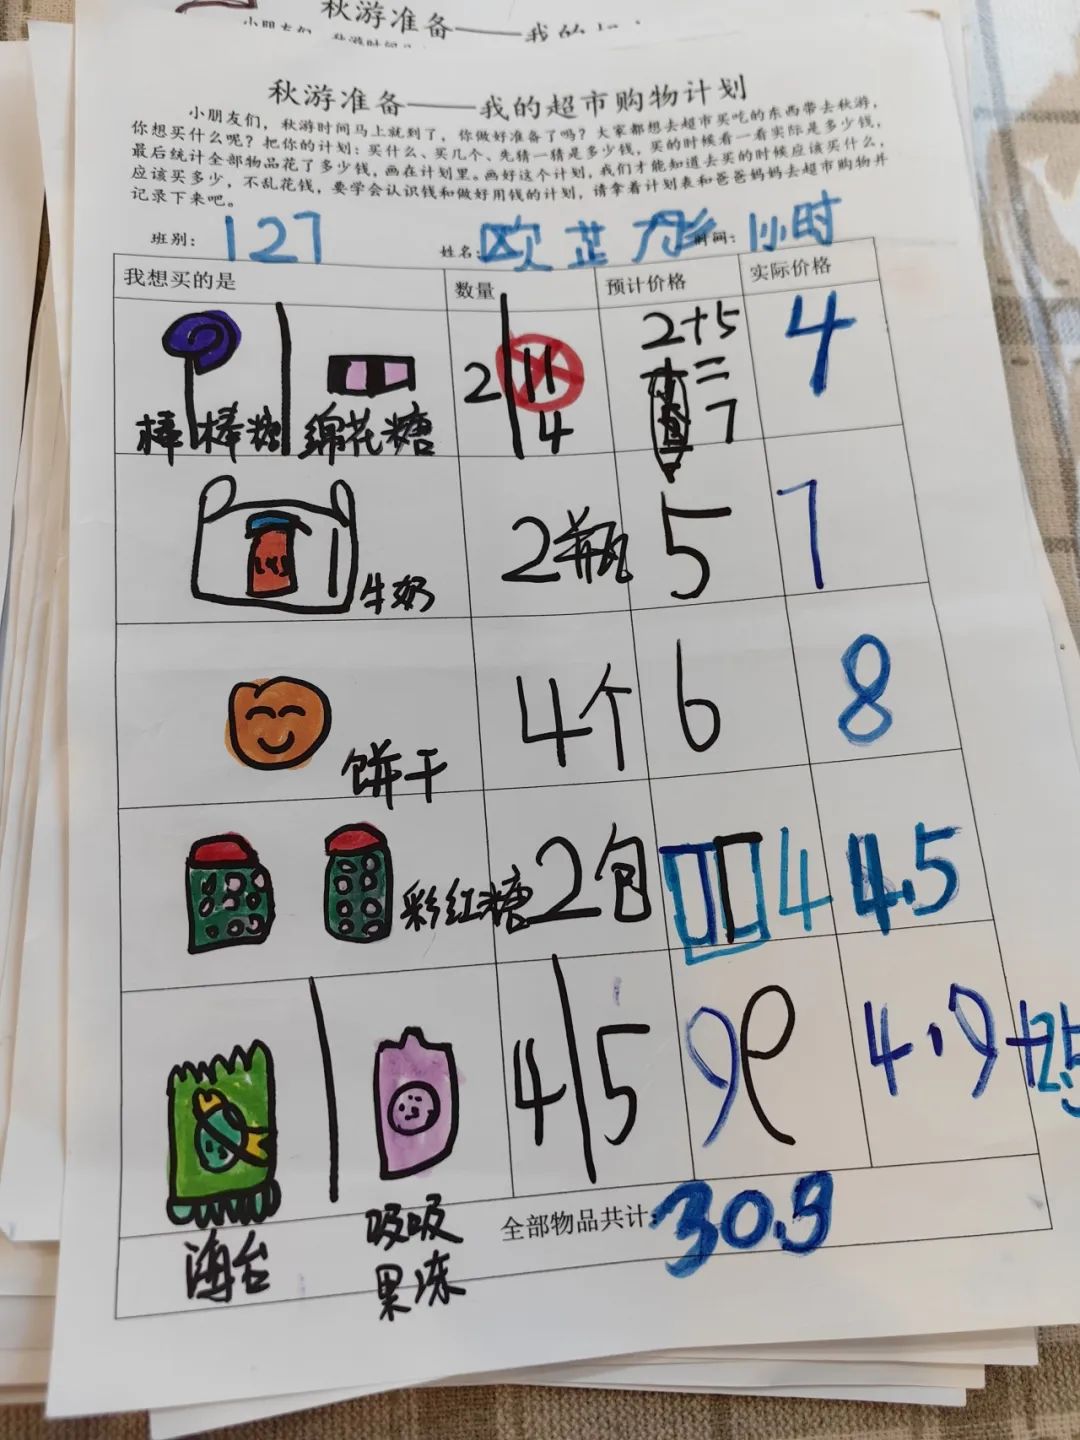 秋游准备——我的超市
秋游准备——我的超市购物计划
小朋友们，秋游时间马上就到了，你做好准备了吗？大家都想去超市买吃的东西带去秋游，
你想买什么呢？把你的计划：买什么、买几个、先猜一猜是多少钱，买的时候看一看实际是多少钱，
最后统计全部物品花了多少钱，画在计划里。画好这个计划，我们才能知道去买的时候应该买什么，
应该买多少，不乱花钱，要学会认识钱和做好用钱的计划，请拿着计划表和爸爸妈妈去超市购物并
记录下来吧。
班别：127 姓名：欧芷彤 时间：1小时
我想买的是 数量 预计价格 实际价格
棒棒糖 绵花糖 2 11 4 2+5=7 4
牛奶 2瓶 5 7
饼干 4个 6 8
彩红糖 2包 4 4.5
海台 吸吸果冻 4 5 9 4.9+2.5
全部物品共计：30.9